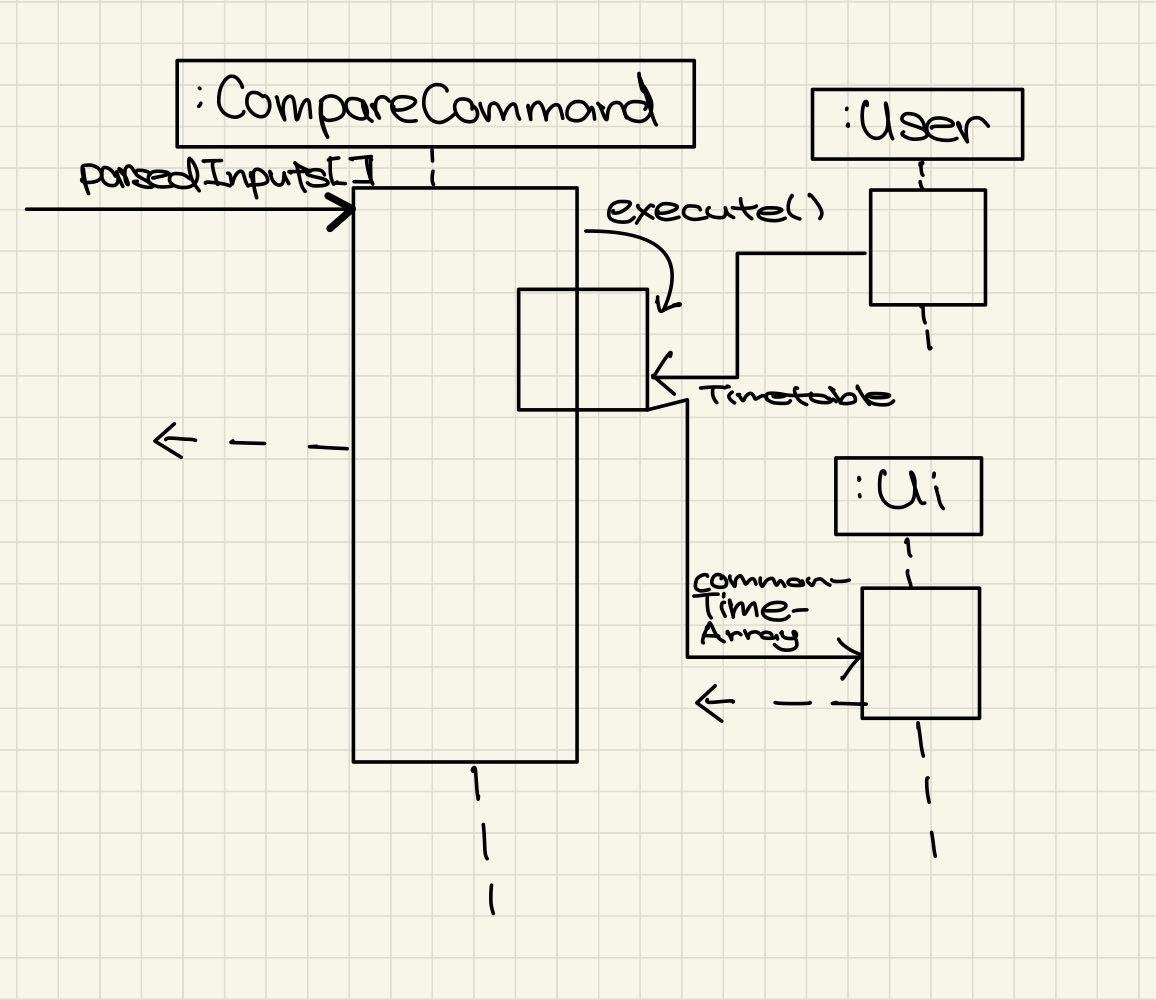 :CompareCommand
:User
parsedInputs[]
execute()
Timetable
:Ui
common-
Time-
Array